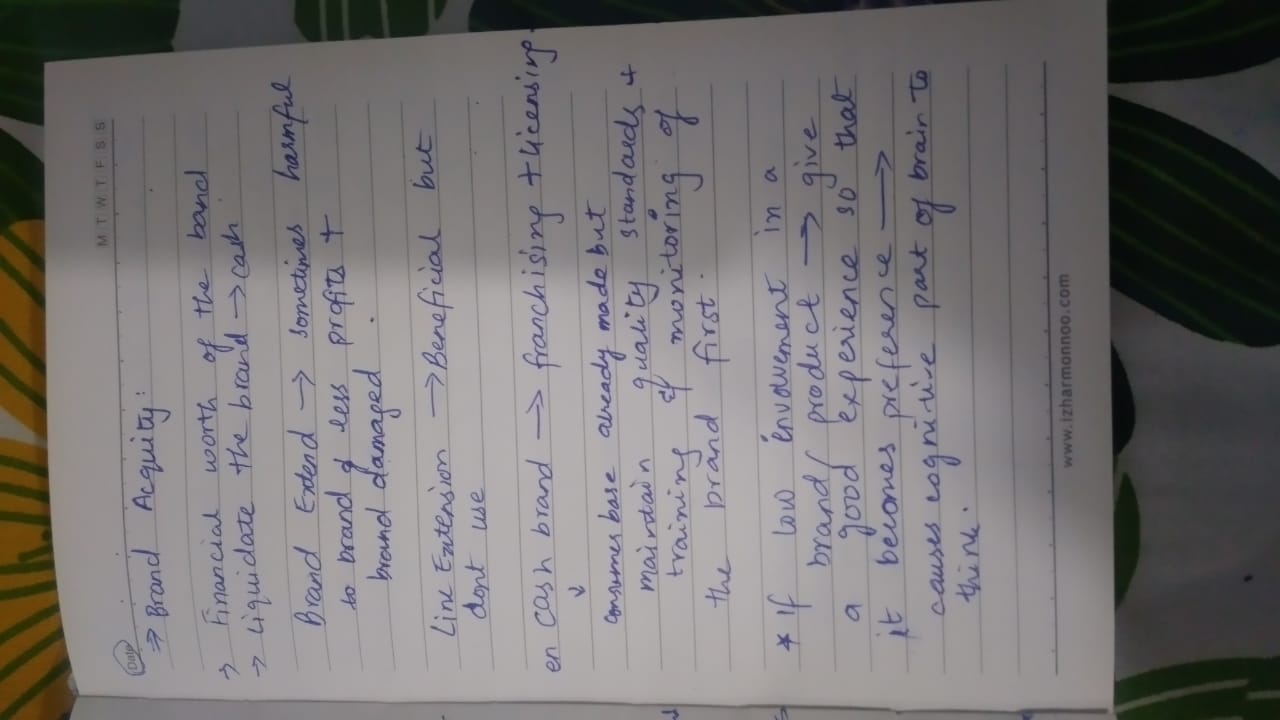 M T W T F S S
Date
⇒ Brand Acquity:
→ Financial worth of the band
→ Liquidate the brand → cash
Brand Extend → sometimes harmful
to brand & less profits +
brand damaged .
Line Extension → Beneficial but
dont use
en cash brand → franchising + licensing.
↓
consumes base already made but
maintain quality standards +
training & monitoring of
the brand first.
* If low envolvement in a
brand/ product → give
a good experience so that
it becomes preference →
causes cognitive part of brain to
think.
www.izharmonnoo.com